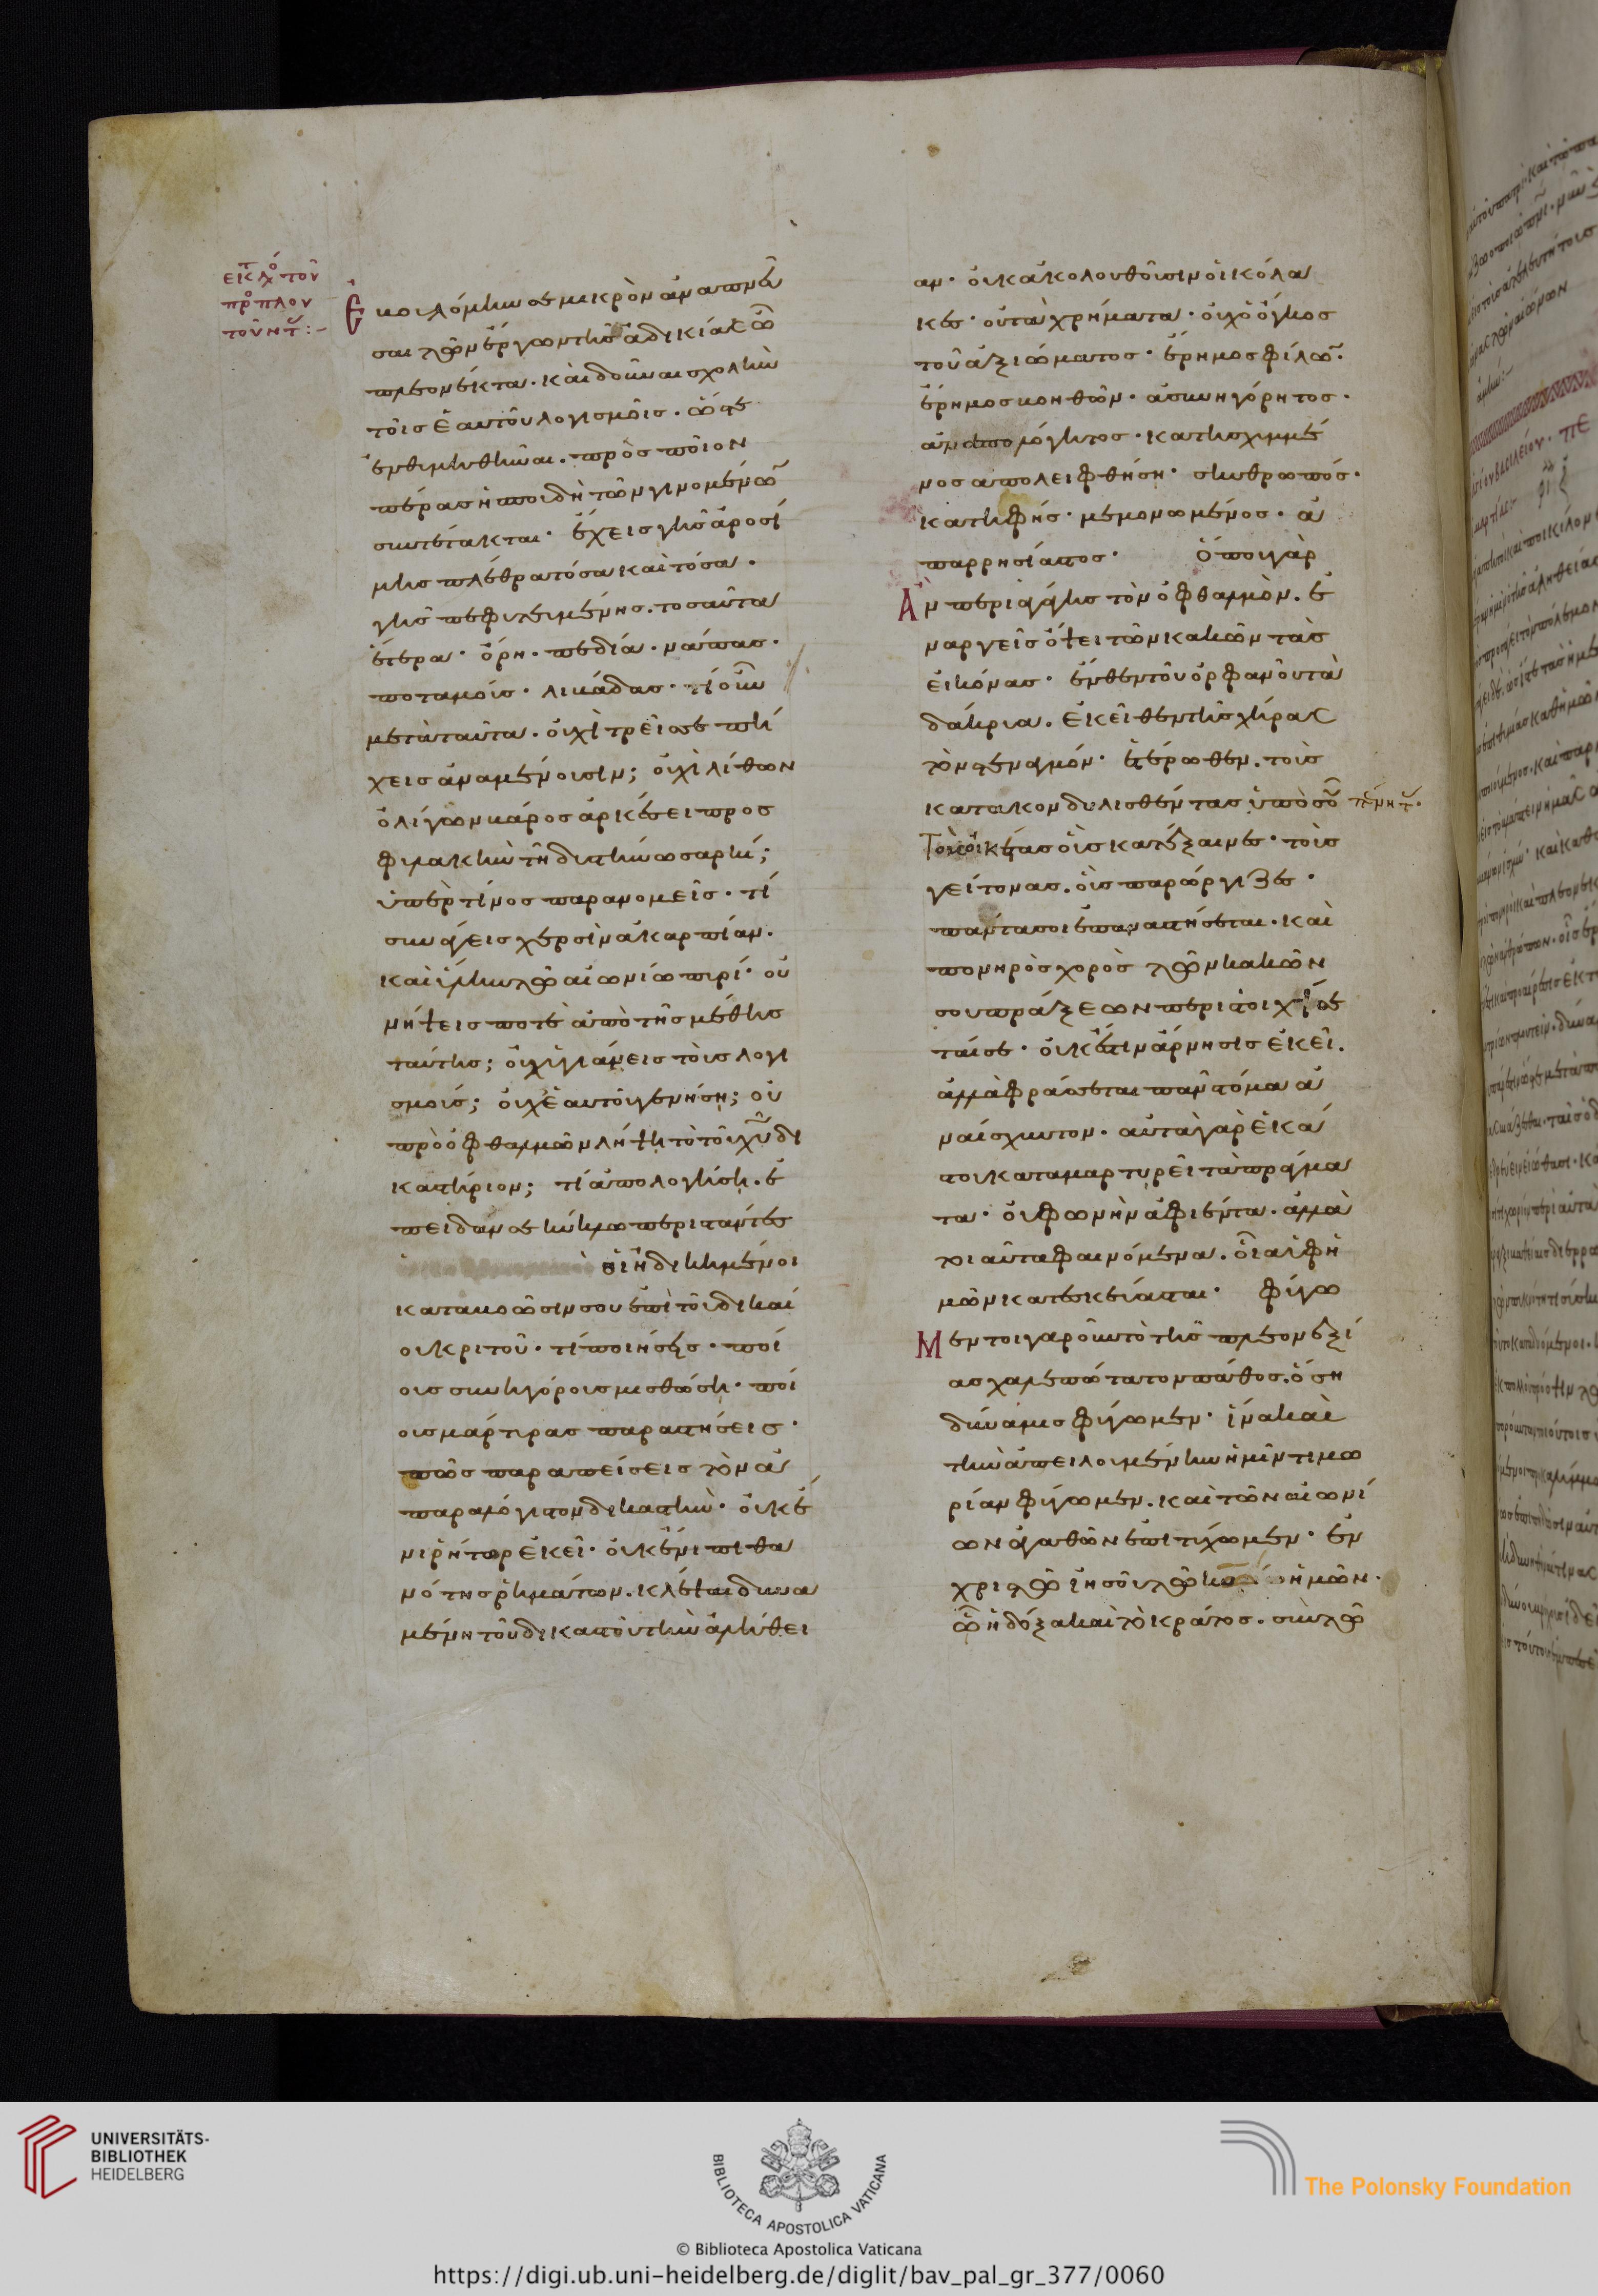 εἰκ τ λό τοῦ
πρ πλου
τοῦντ :-
Ἐβουλόμην σε μικρὸν ἀναπνεῦ
σαι τῶν ἔργων τῆς ἀδικίας ὦ
πλεονέκτα. καὶ δοῦναι σχολὴν
τοῖς ἑαυτοῦ λογισμοῖς. ὥστε
ἐνθυμηθῆναι. πρὸς ποῖον
πέρας ἡ σπουδὴ τῶν γινομένων
συντέτακται· ἔχεις γῆς ἀροσί
μης πλέθρα τόσα καὶ τόσα.
γῆς πεφυτευμένης. τοσαῦτα
ἕτερα· ὄρη. πεδία. νάπας.
ποταμούς. λιβάδας. τί οὖν
μετὰ ταῦτα. οὐχὶ τρεῖς σε πή
χεις ἀναμένουσιν; οὐχὶ λίθων
ὀλίγων βάρος ἀρκέσει προς
φυλακὴν τῆ δυστήνω σαρκί;
ὑπὲρ τίνος παρανομεῖς. τί
συνάγεις χερσὶν ἀκαρπίαν.
καὶ ὕλην τῶ αἰωνίω πυρί· οὐ
νήψεις ποτὲ ἀπὸ τῆς μέθης
ταύτης; οὐχ ὑγιάνεις τοὺς λογι
σμούς; οὐχ ἑαυτοῦ γενήση; οὐ
πρὸ ὀφθαλμῶν λήψη τὸ τοῦ χῦ δι
καστήριον; τί ἀπολογήση. ἐ
πειδάν σε κύκλω περιστάντες
οἱ ἠδικημένοι
καταβοῶσιν σου ἐπὶ τοῦ δικαί
ου κριτοῦ. τί ποιήσεις. ποί
ους συνηγόρους μισθώση· ποί
ους μάρτυρας παραστήσεις.
πῶς παραπείσεις τὸν ἀ
παραλόγιστον δικαστὴν· οὐκ ἔ
νι ῥήτωρ ἐκεῖ· οὐκ ἔνι πιθα
νότης ῥημάτων. κλέψαι δυνα
μένη τοῦ δικαστοῦ τὴν ἀλήθει
αν· οὐκ ἀκολουθοῦσιν οἱ κόλα
κες· οὐ τὰ χρήματα· οὐχ ὁ ὄγκος
τοῦ ἀξιώματος· ἔρημος φίλων.
ἔρημος βοηθῶν. ἀσυνηγόρητος.
ἀναπολόγητος. κατησχυμμέ
νος ἀπολειφθήση· σκυθρωπός.
κατηφής· μεμονωμένος. ἀ
παρρησίαστος· Ὅπου γὰρ
Ἂν περιαγάγης τὸν ὀφθαλμὸν. ἐ
ναργεῖς ὄψει τῶν κακῶν τὰς
εἰκόνας· ἔνθεν τοῦ ὀρφανοῦ τὰ
δάκρυα. ἐκεῖθεν τῆς χήρας
τὸν στεναγμόν· ἑτέρωθεν. τοὺς
κατακονδυλισθέντας ὑπὸ σοῦ πένητ.
Τοὺς οἰκέτας οὓς κατέξαινες· τοὺς
γείτονας. οὓς παρώργιζες.
πάντα σοι ἐπαναστήσεται. καὶ
πονηρὸς χορὸς τῶν κακῶν
σου πράξεων περιστοιχιεῖ σε
ταί σε· οὐκ ἔστιν ἄρνησις ἐκεῖ.
ἀλλὰ φράσσεται πᾶν στόμα ἀ
ναίσχυντον. αὐτὰ γὰρ ἑκά
στου καταμαρτυρεῖ τὰ πράγμα
τα· οὐ φωνὴν ἀφιέντα. ἀλλὰ
τοιαῦτα φαινόμενα. οἷα ὑφ' ἡ
μῶν κατεσκεύασται· φύγω
Μεν τοιγαροῦν τὸ τῆς πλεονεξί
ας χαλεπώτατον πάθος. ὅση
δύναμις φύγωμεν· ἵνα καὶ
τὴν ἀπειλουμένην ἡμῖν τιμω
ρίαν φύγωμεν. καὶ τῶν αἰωνί
ων ἀγαθῶν ἐπιτύχωμεν· ἐν
χριστῶ ἰησοῦ τῶ κω ἡμῶν.
ὧ ἡ δόξα καὶ τὸ κράτος. σὺν τῶ
UNIVERSITÄTS-
BIBLIOTHEK
HEIDELBERG
BIBLIOTECA APOSTOLICA VATICANA
The Polonsky Foundation
© Biblioteca Apostolica Vaticana
https://digi.ub.uni-heidelberg.de/diglit/bav_pal_gr_377/0060